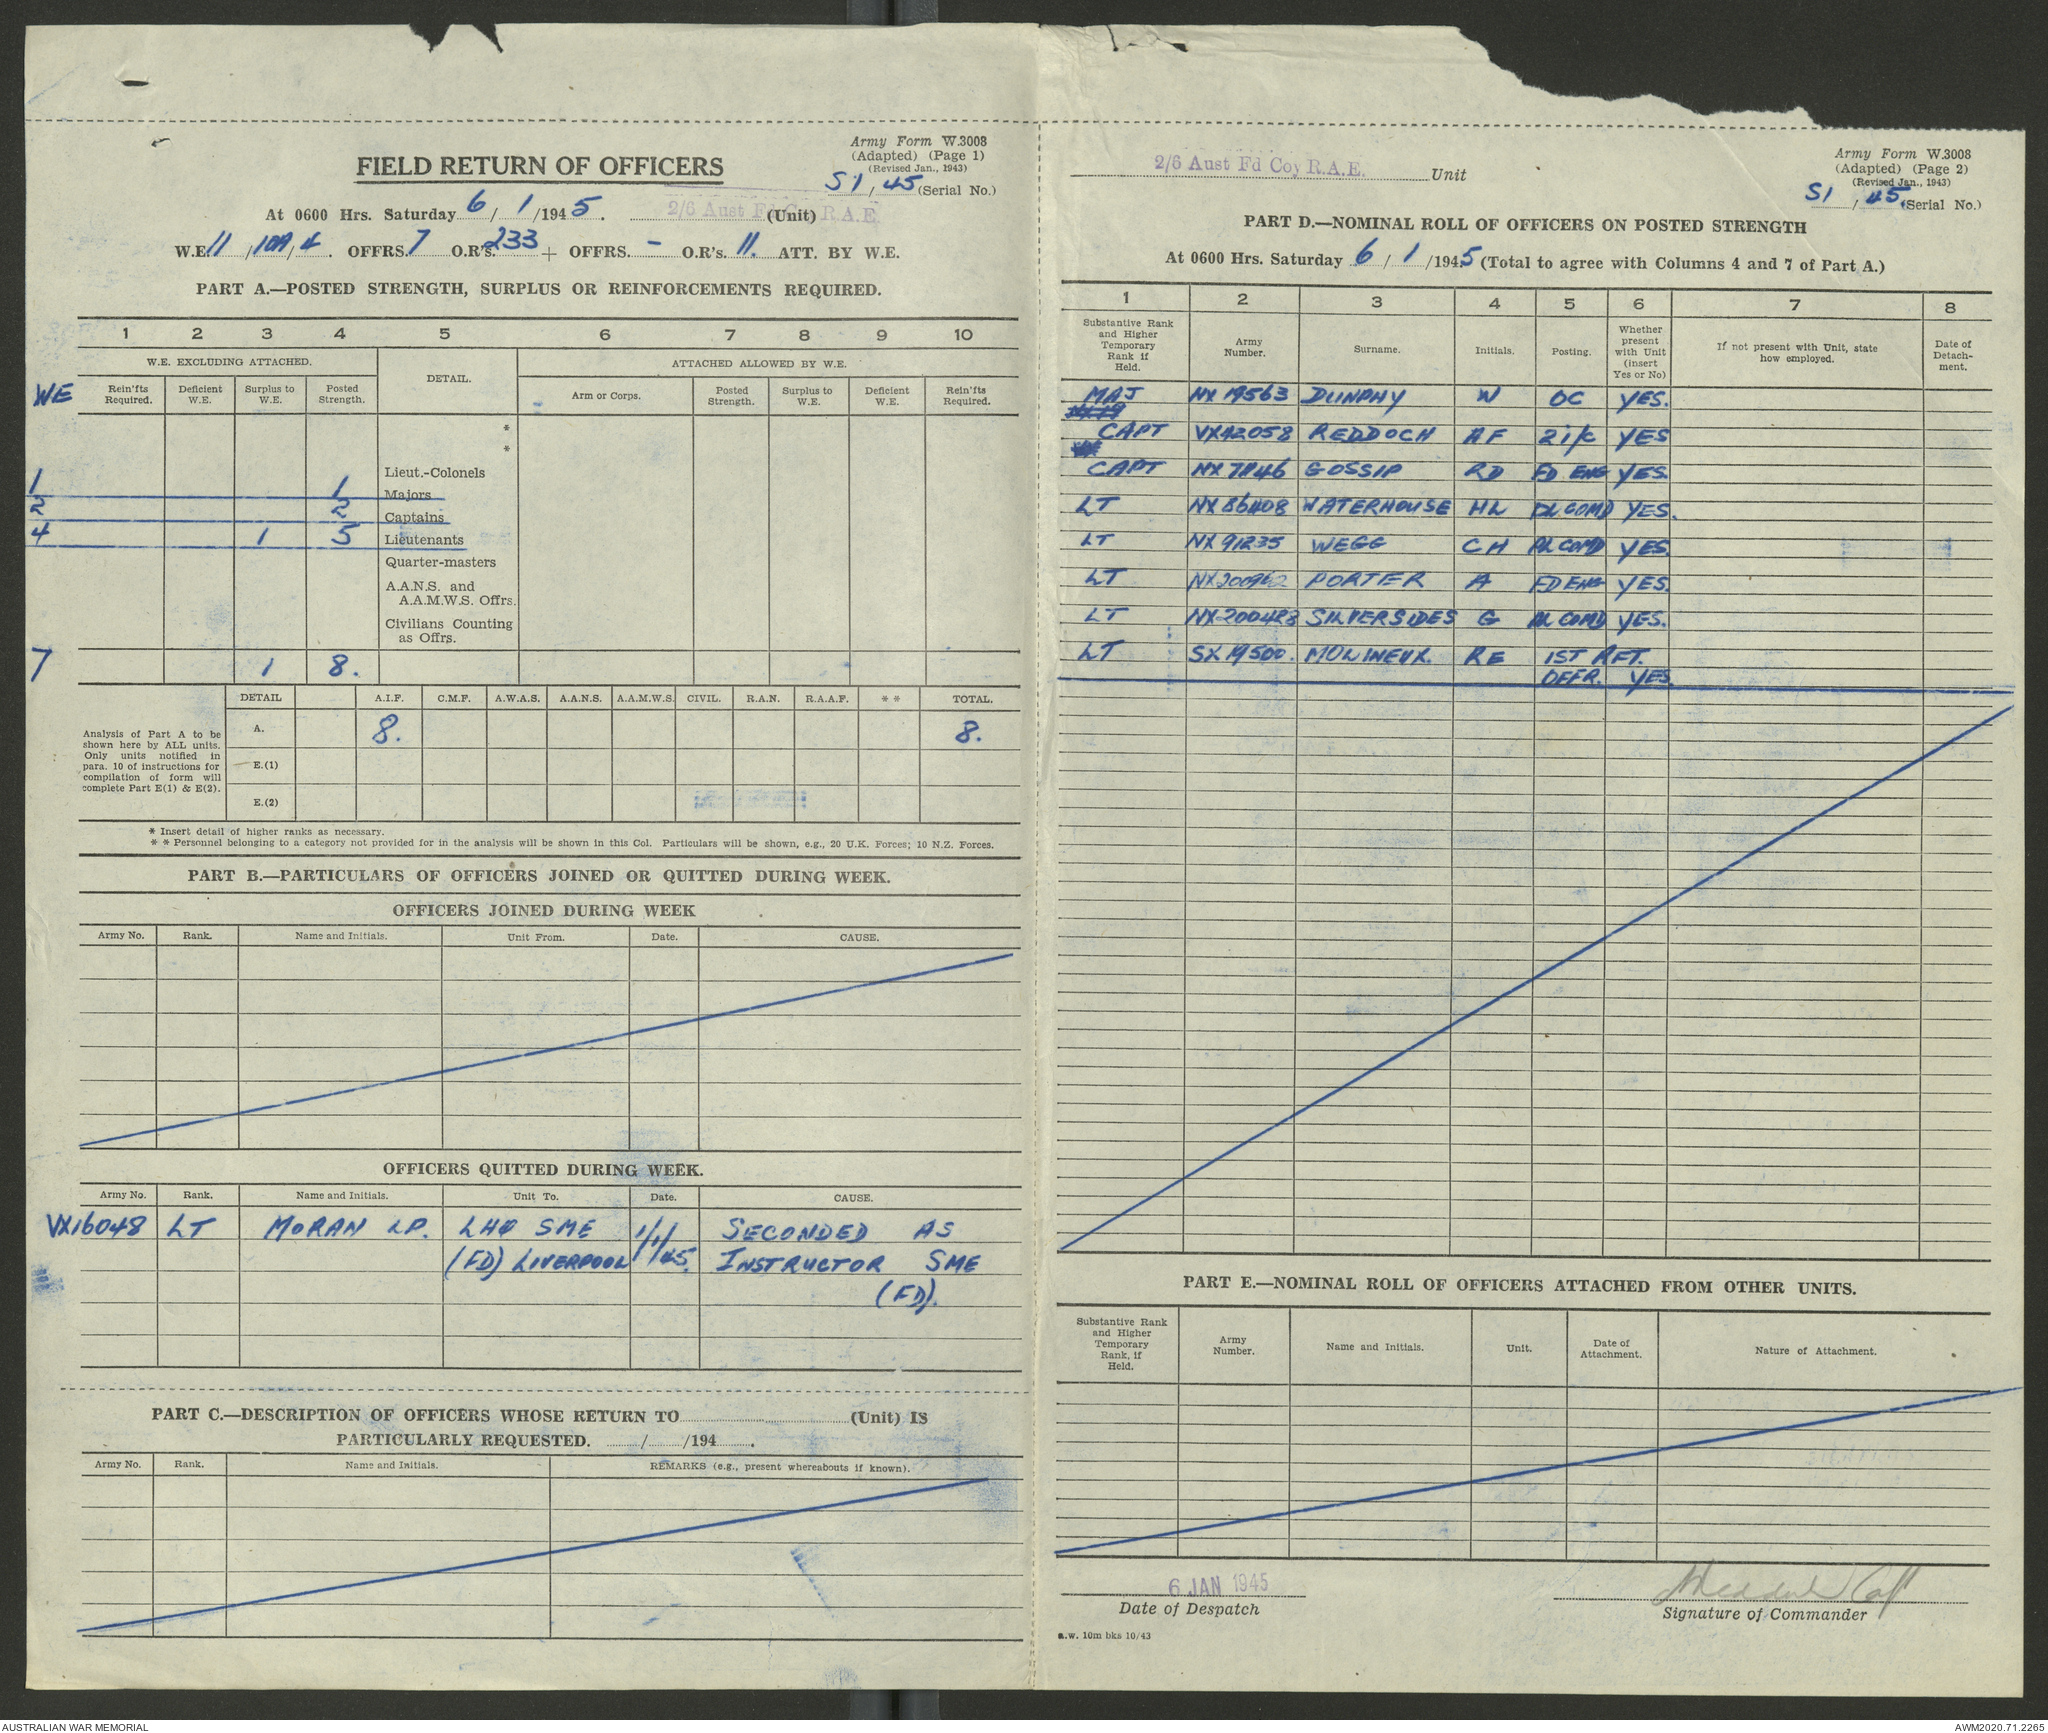 Army Form W.3008
(Adapted) (Page 1)
(Revised Jan., 1943)
FIELD RETURN OF OFFICERS
S1/45 (Serial No.)
At 0600 Hrs. Saturday 6/1/1945. 2/6 Aust Fd Coy R.A.E. (Unit)
W.E. 11/10A/4. OFFRS. 7 O.R's. 233 + OFFRS. - O.R's. 11. ATT. BY W.E.
PART A.—POSTED STRENGTH, SURPLUS OR REINFORCEMENTS REQUIRED.
1 2 3 4 5 6 7 8 9 10
W.E. EXCLUDING ATTACHED. DETAIL. ATTACHED ALLOWED BY W.E.
WE Rein'fts Required. Deficient W.E. Surplus to W.E. Posted Strength. Arm or Corps. Posted Strength. Surplus to W.E. Deficient W.E. Rein'fts Required.
*
*
Lieut.-Colonels
1 1 Majors
2 2 Captains
4 1 5 Lieutenants
Quarter-masters
A.A.N.S. and
A.A.M.W.S. Offrs.
Civilians Counting
as Offrs.
7 1 8.
DETAIL A.I.F. C.M.F. A.W.A.S. A.A.N.S. A.A.M.W.S. CIVIL. R.A.N. R.A.A.F. ** TOTAL.
Analysis of Part A to be
shown here by ALL units.
Only units notified in
para. 10 of instructions for
compilation of form will
complete Part E(1) & E(2).
A. 8. 8.
E.(1)
E.(2)
* Insert detail of higher ranks as necessary.
* * Personnel belonging to a category not provided for in the analysis will be shown in this Col. Particulars will be shown, e.g., 20 U.K. Forces; 10 N.Z. Forces.
PART B.—PARTICULARS OF OFFICERS JOINED OR QUITTED DURING WEEK.
OFFICERS JOINED DURING WEEK
Army No. Rank. Name and Initials. Unit From. Date. CAUSE.
OFFICERS QUITTED DURING WEEK.
Army No. Rank. Name and Initials. Unit To. Date. CAUSE.
VX16048 LT MORAN LP. LHQ SME 1/1/45. SECONDED AS
(FD) LIVERPOOL INSTRUCTOR SME
(FD).
PART C.—DESCRIPTION OF OFFICERS WHOSE RETURN TO (Unit) IS
PARTICULARLY REQUESTED. / /194 .
Army No. Rank. Name and Initials. REMARKS (e.g., present whereabouts if known).
Army Form W.3008
(Adapted) (Page 2)
(Revised Jan., 1943)
2/6 Aust Fd Coy R.A.E. Unit
S1/45. (Serial No.)
PART D.—NOMINAL ROLL OF OFFICERS ON POSTED STRENGTH
At 0600 Hrs. Saturday 6/1/1945 (Total to agree with Columns 4 and 7 of Part A.)
1 2 3 4 5 6 7 8
Substantive Rank and Higher Temporary Rank if Held. Army Number. Surname. Initials. Posting. Whether present with Unit (insert Yes or No) If not present with Unit, state how employed. Date of Detachment.
MAJ NX 19563 DUNPHY W OC YES.
CAPT VX42058 REDDOCH AF 2i/c YES
CAPT GOSSIP RD FD ENG YES.
LT NX 86408 WATERHOUSE HL PL COMD YES.
LT NX 91235 WEGG CH PL COMD YES.
LT PORTER A FD ENG YES.
LT NX200488 SILVERSIDES G PL COMD YES.
LT SX 19500. MOLINEUX. RE 1ST RFT.
OFFR. YES.
PART E.—NOMINAL ROLL OF OFFICERS ATTACHED FROM OTHER UNITS.
Substantive Rank and Higher Temporary Rank, if Held. Army Number. Name and Initials. Unit. Date of Attachment. Nature of Attachment.
6 JAN 1945
Date of Despatch
Reddoch Capt
Signature of Commander
a.w. 10m bks 10/43
AUSTRALIAN WAR MEMORIAL
AWM2020.71.2265